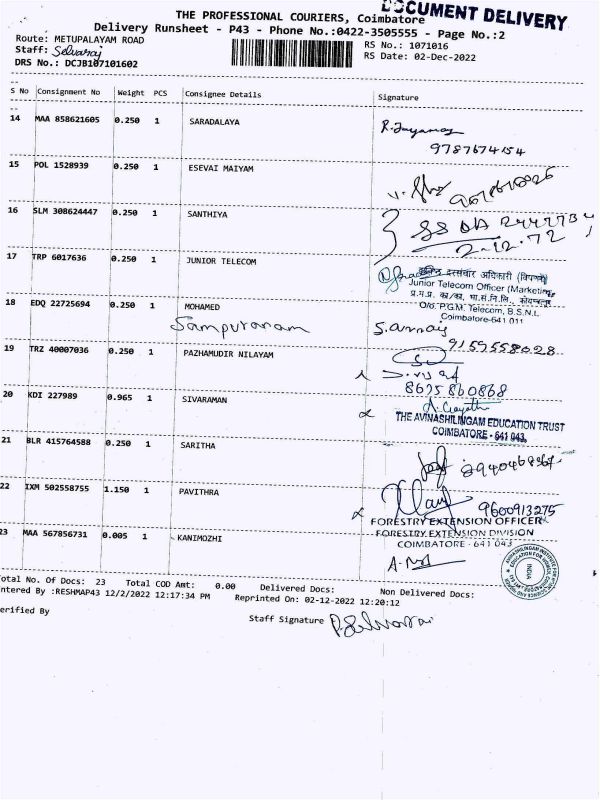 DOCUMENT DELIVERY
THE PROFESSIONAL COURIERS, Coimbatore
Delivery Runsheet - P43 - Phone No.:0422-3505555 - Page No.:2
Route: METUPALAYAM ROAD
RS No.: 1071016
Staff: Selvaraj
RS Date: 02-Dec-2022
DRS No.: DCJB107101602
S No Consignment No Weight PCS Consignee Details Signature
14 MAA 858621605 0.250 1 SARADALAYA
9787674154
15 POL 1528939 0.250 1 ESEVAI MAIYAM
16 SLM 308624447 0.250 1 SANTHIYA
17 TRP 6017636 0.250 1 JUNIOR TELECOM
दूरसंचार अधिकारी (विपणन)
Junior Telecom Officer (Marketing)
O/o. P.G.M. Telecom, B.S.N.L
Coimbatore-641 011
18 EDQ 22725694 0.250 1 MOHAMED
Sampuranam
9159558028
19 TRZ 40007036 0.250 1 PAZHAMUDIR NILAYAM
8675860868
20 KDI 227989 0.965 1 SIVARAMAN
THE AVINASHILINGAM EDUCATION TRUST
COIMBATORE - 641 043.
21 BLR 415764588 0.250 1 SARITHA
22 IXM 502558755 1.150 1 PAVITHRA
9600913275
FORESTRY EXTENSION OFFICER
FORESTRY EXTENSION DIVISION
COIMBATORE - 641 043
23 MAA 567856731 0.005 1 KANIMOZHI
INDIA
Total No. Of Docs: 23 Total COD Amt: 0.00 Delivered Docs: Non Delivered Docs:
Entered By :RESHMAP43 12/2/2022 12:17:34 PM Reprinted On: 02-12-2022 12:20:12
Verified By
Staff Signature P. Selvaraj